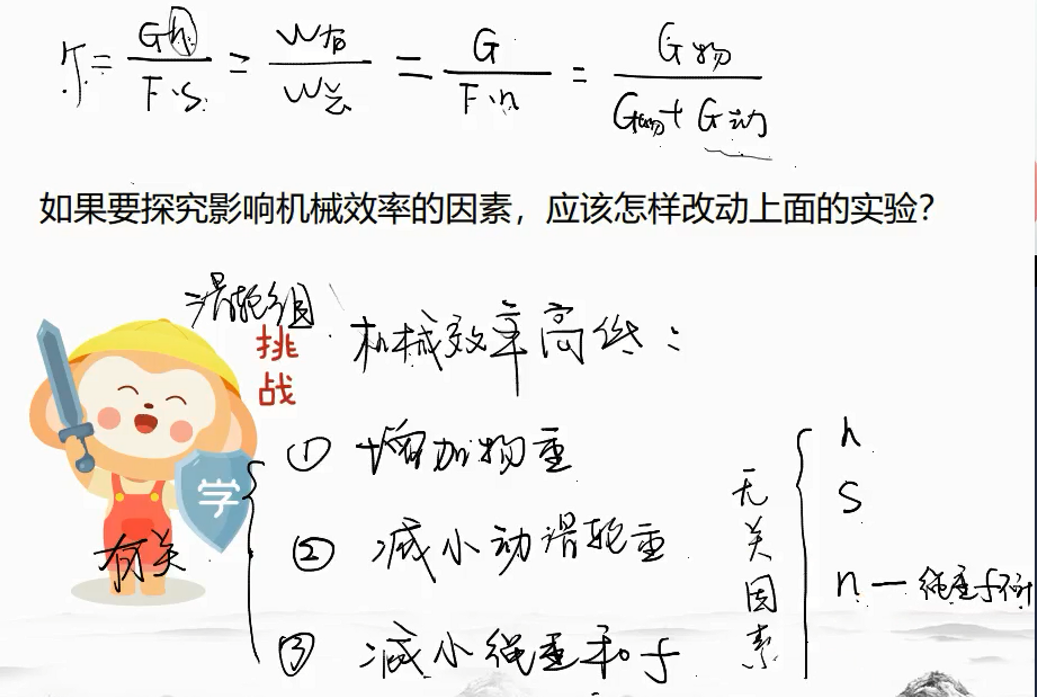 η = Gh / F·s = W有 / W总 = G / F·n = G物 / G物+G动
如果要探究影响机械效率的因素，应该怎样改动上面的实验？
滑轮组
挑战
机械效率高低：
学
有关
① 增加物重
② 减小动滑轮重
③ 减小绳重和f
无关因素
h
s
n — 绳重f不计